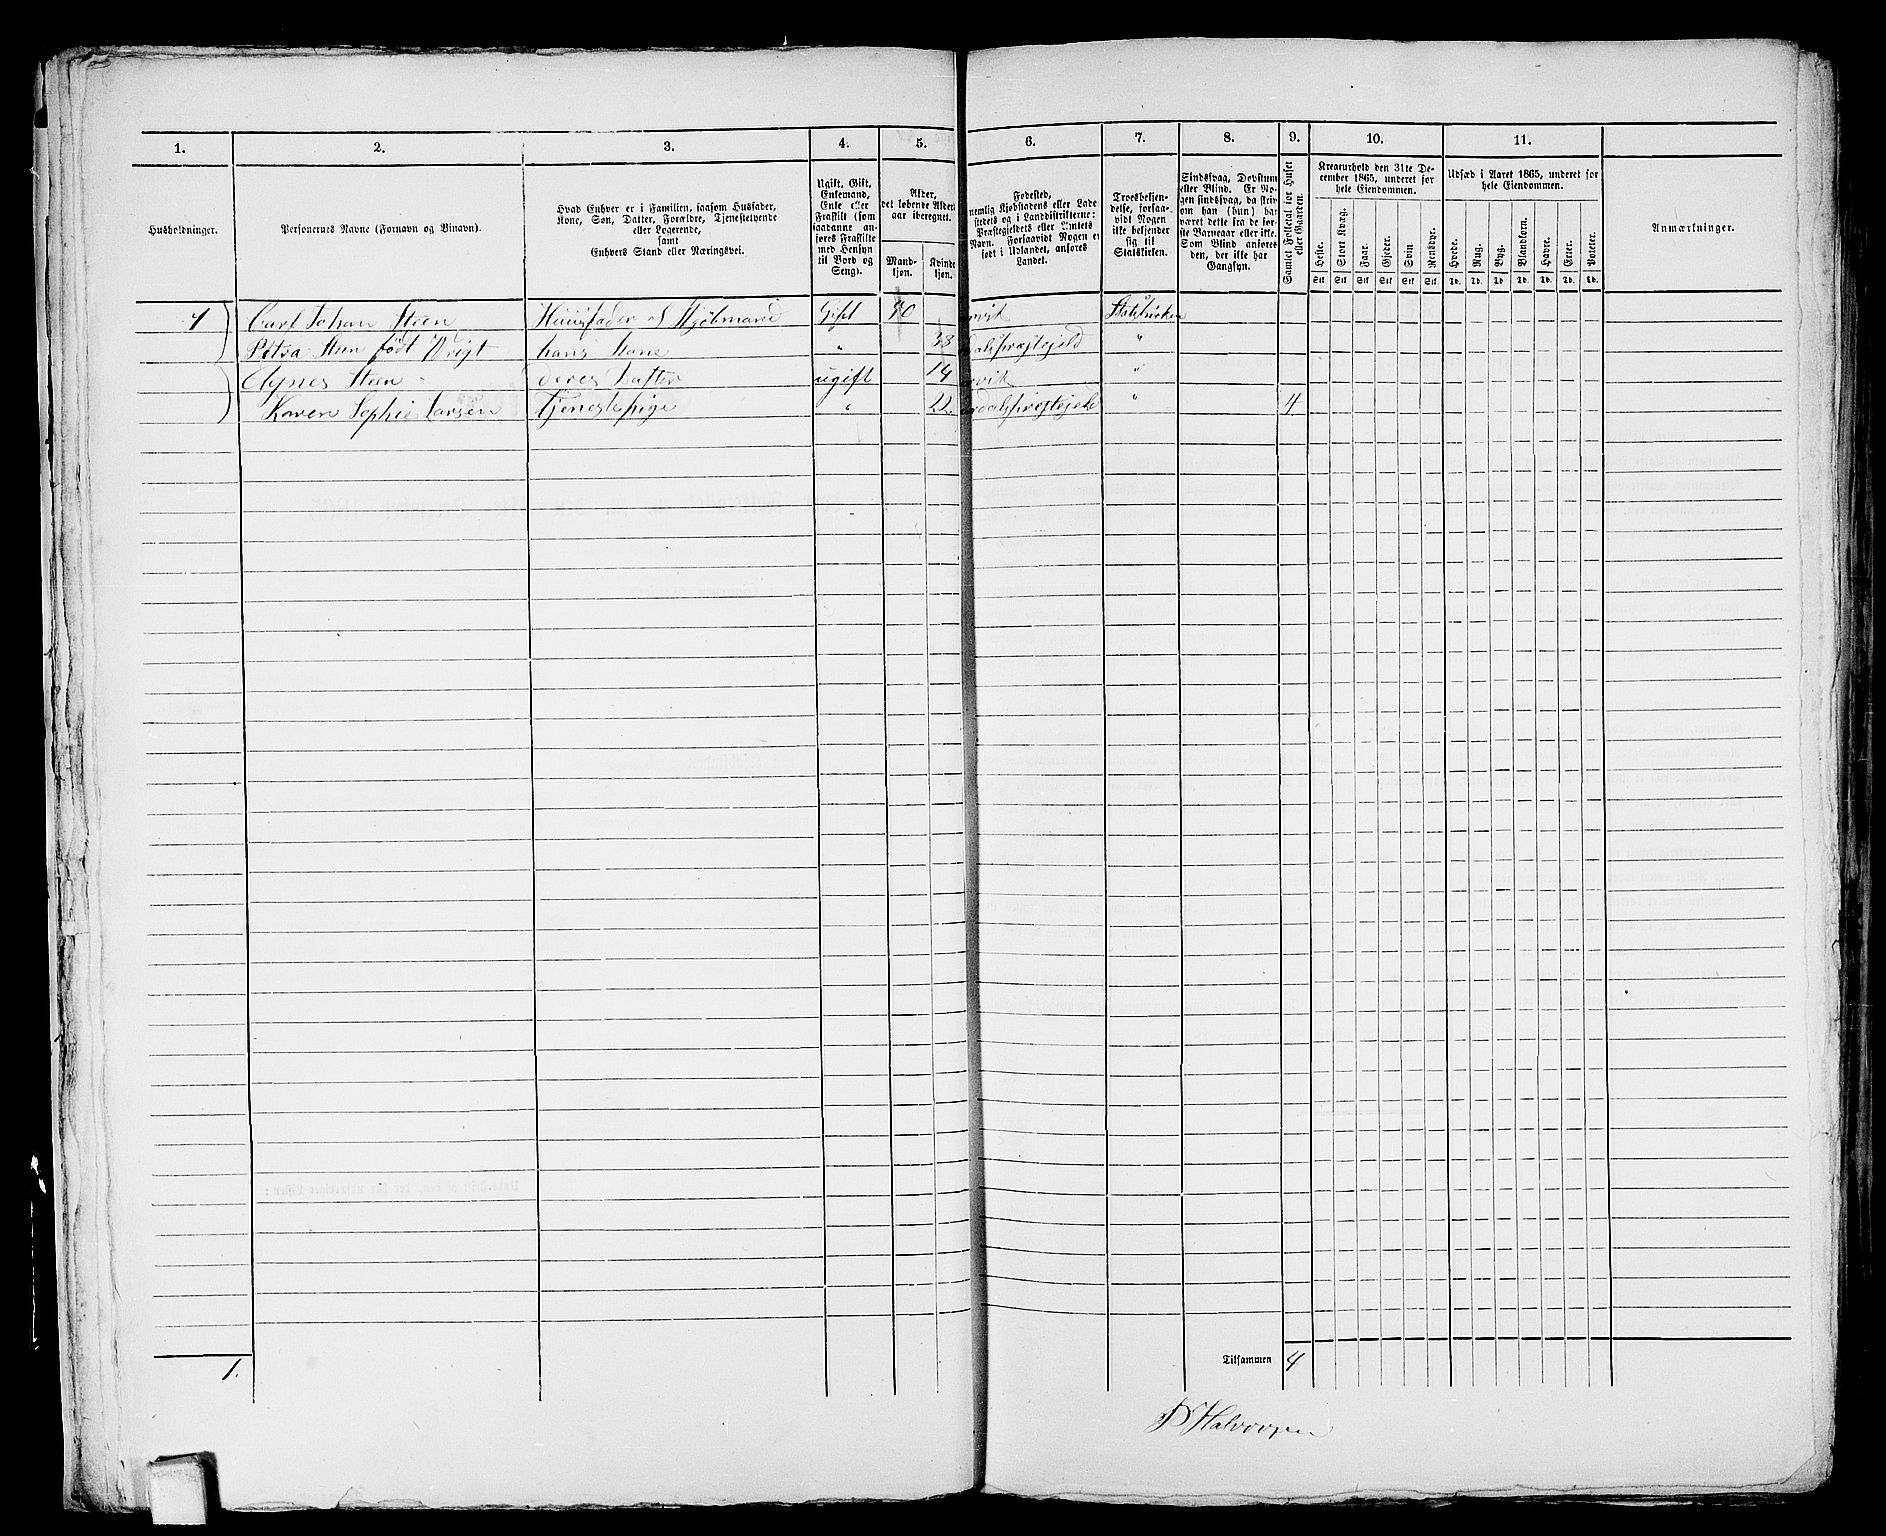 1. 2. 3. 4. 5. 6. 7. 8. 9. 10. 11.
Husholdninger.
Personernes Navne (Fornavn og Binavn).
Hvad Enhver er i Familien, saasom Husfader,
Kone, Søn, Datter, Forældre, Tjenestetyende
eller Logerende,
samt
Enhvers Stand eller Næringsvei.
Ugift, Gift,
Enkemand,
Enke eller
Fraskilt (som
saadanne an-
føres Fraskilte
med Hensyn
til Bord og
Seng).
Alder,
det løbende Alders-
aar iberegnet.
Mand-
kjøn.
Kvinde-
kjøn.
Fødested,
nemlig Kjøbstadens eller Lade-
stedets og i Landdistrikterne:
Præstegjeldets eller
Navn. Forsaavidt Nogen er
født i Udlandet, anføres
Landet.
Troesbekjen-
delse, forsaa-
vidt Nogen
ikke bekjender
sig til
Statskirken.
Sindssvag, Døvstum
eller Blind. Er No-
gen sindssvag, da skri-
om han (hun) har
været dette fra de før-
ste Barneaar eller ikke.
Som Blind anføres
den, der ikke har
Gangsyn.
Samlet Folketal for Huset
eller Gaarden.
Kreaturhold den 31te De-
cember 1865, underet for
hele Eiendommen.
Heste. Stort Kvæg. Faar. Gjeder. Svin Rensdyr.
Stk Stk Stk Stk Stk Stk
Udsæd i Aaret 1865, underet for
hele Eiendommen.
Hvede. Rug. Byg. Blandkorn. Havre. Erter. Poteter.
Td. Td. Td. Td. Td. Td. Td.
Anmærkninger.
1 Carl Johan Steen Huusfader Gift 40 Statskirken
Petra Steen født Wrigt hans Kone " 38 "
Agnes Steen deres Datter ugift 14 "
Karen Sophie Larsen Tjenestepige " 22 " 4
1. Tilsammen 4
Halvorsen